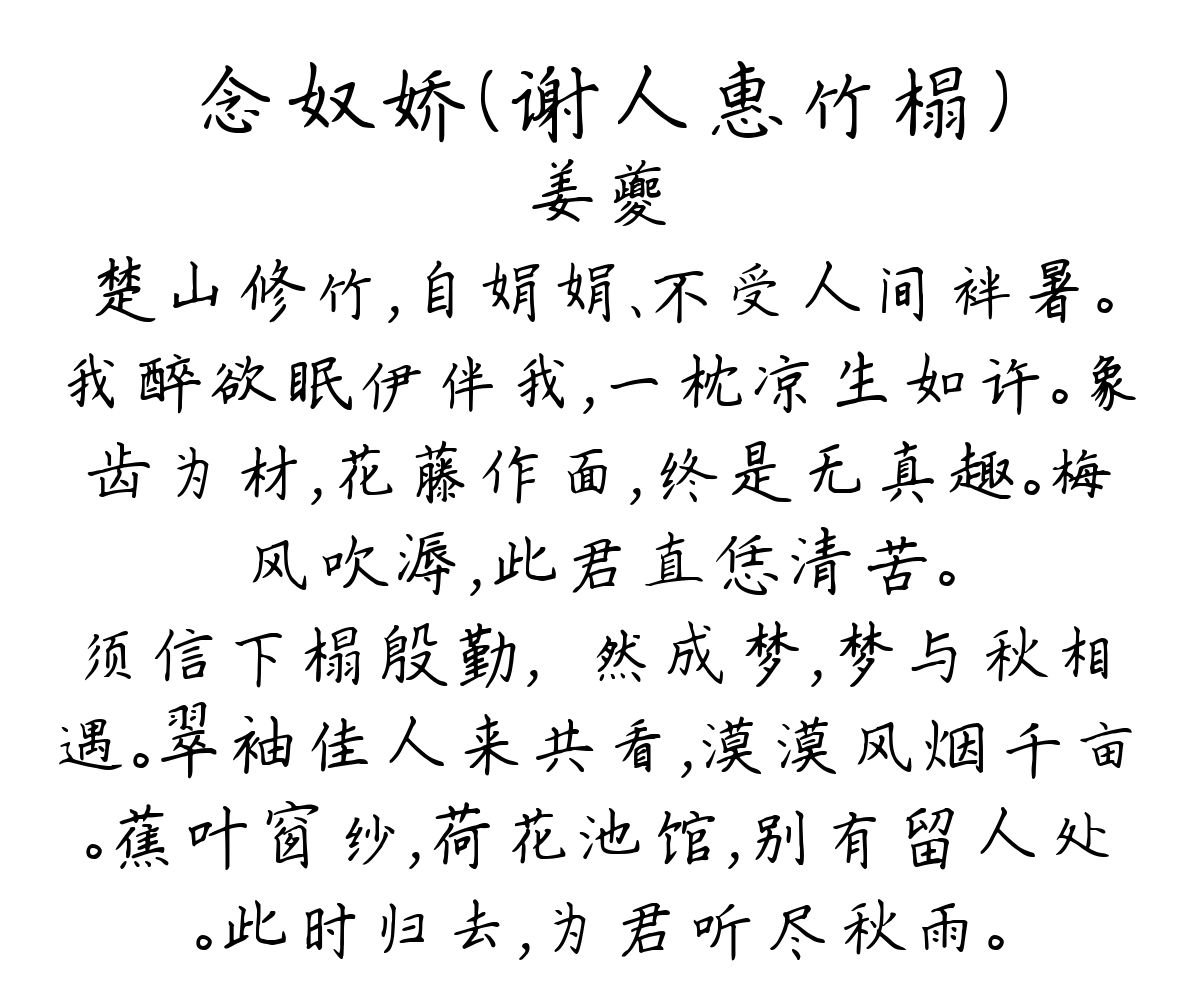 念奴娇(谢人惠竹榻)
姜夔
楚山修竹,自娟娟、不受人间袢暑。
我醉欲眠伊伴我,一枕凉生如许。象
齿为材,花藤作面,终是无真趣。梅
风吹溽,此君直恁清苦。
须信下榻殷勤, 然成梦,梦与秋相
遇。翠袖佳人来共看,漠漠风烟千亩
。蕉叶窗纱,荷花池馆,别有留人处
。此时归去,为君听尽秋雨。